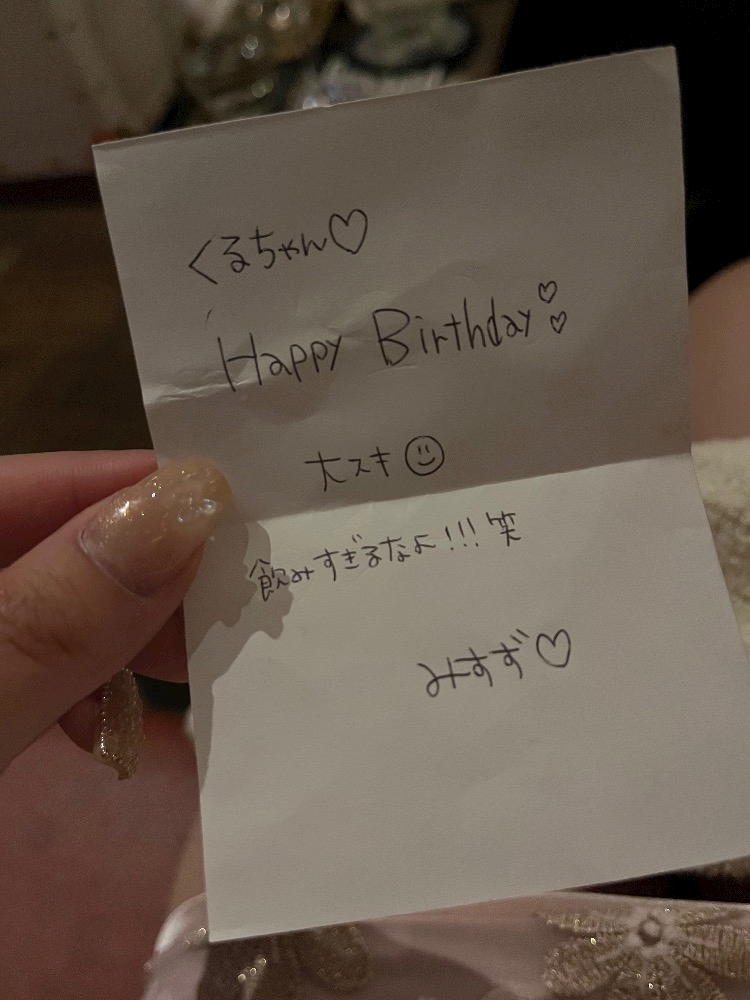 くるちゃん♡
Happy Birthday♡♡
大スキ☺
飲みすぎるなよ!!!笑
みすず♡